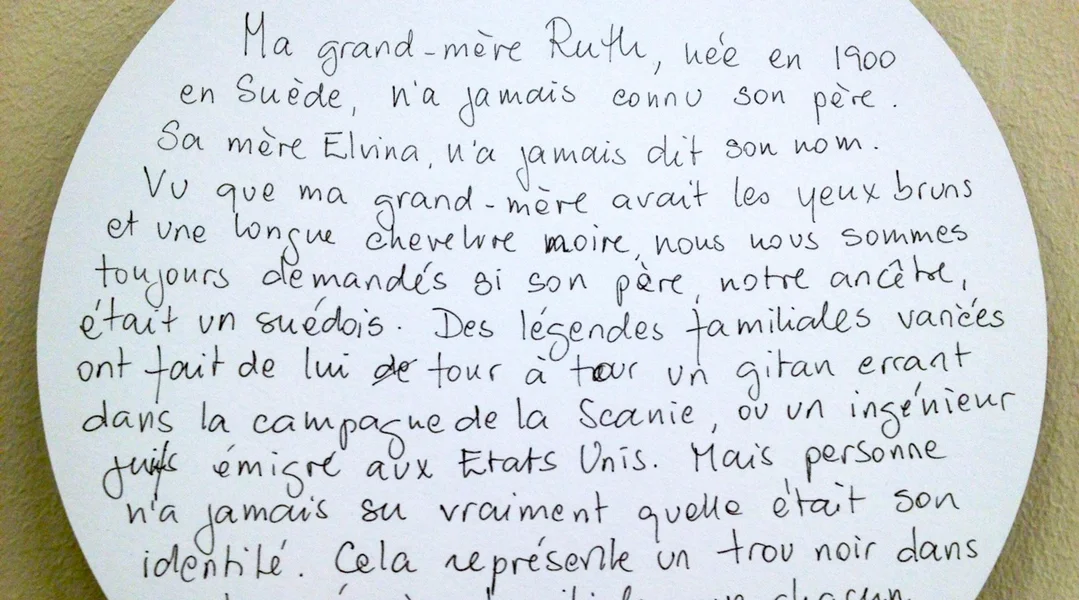 Ma grand-mère Ruth, née en 1900
en Suède, n'a jamais connu son père.
Sa mère Elvina, n'a jamais dit son nom.
Vu que ma grand-mère avait les yeux bruns
et une longue chevelure noire, nous nous sommes
toujours demandés si son père, notre ancêtre,
était un suédois. Des légendes familiales variées
ont fait de lui tour à tour un gitan errant
dans la campagne de la Scanie, ou un ingénieur
juif émigré aux Etats Unis. Mais personne
n'a jamais su vraiment quelle était son
identité. Cela représente un trou noir dans
chacun